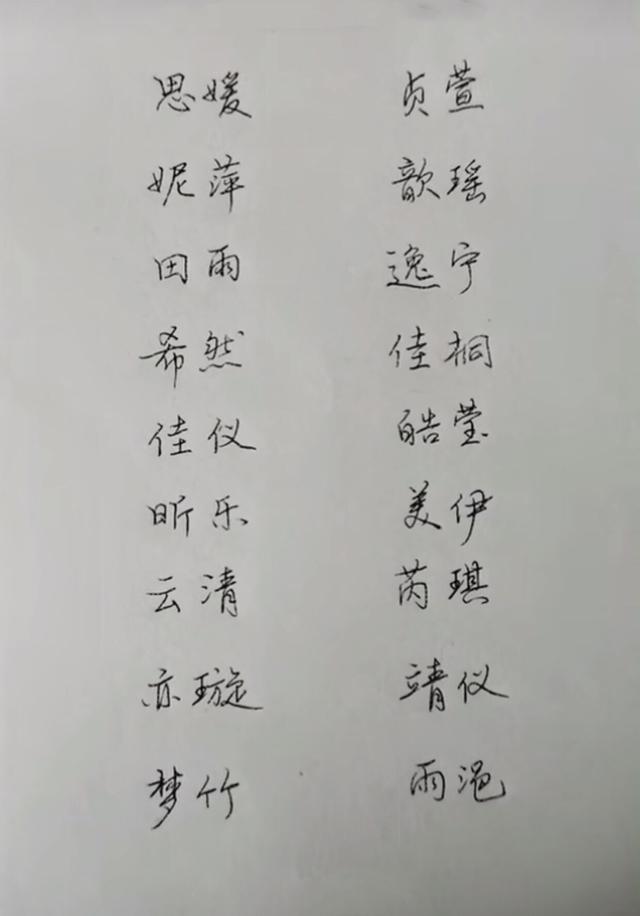 思媛 贞萱
妮萍 歆瑶
田雨 逸宁
希然 佳桐
佳仪 皓莹
昕乐 美伊
云清 芮琪
亦璇 靖仪
梦竹 雨浥